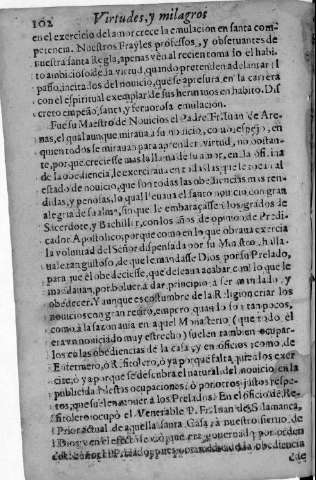 102 Virtudes, y milagros
en el exercicio del amor crece la emulacion en santa com-
petencia. Nuestros Frayles professos, y obseruantes de
nuestra santa Regla, apenas vèn al recien toma lo el habi-
to ambicioso de la virtud, quando pretenden adelantar el
passo, incitados del nouicio, que se apresura, en la carrera
con el espiritual exemplar de sus hermanos en habito. Dis
creto empeño, santa, y feruorosa emulacion.
Fue su Maestro de Nouicios el Padre Fr. Iuan de Are-
nas, el qual aunque miraua à su nouicio, como espejo, en
quien todos se mirauan para aprender virtud, no obstan-
te, porque creciesse mas la llama de su amor, en la oficina
de la obediencia, le exercitaua en todas las que tocan al
estado de nouicio, que son todas las obediencias mas ren-
didas, y penosas, lo qual lleuaua el santo nouicio con gran
alegria de su alma, sin que le embaraçassen los grados de
Sacerdote, y Bachiller, con los años de opinion de Predi-
cador Apostolico; porque como en lo que obraua exercia
la voluntad del Señor dispensada por su Maestro, halla-
uale tan gustoso, de que le mandasse Dios, por su Prelado,
para que èl obedeciesse, que deseaua acabar con lo que le
mandauan, por boluer à dar principio à ser mandado, y
obedecer. Y aunque es costumbre de la Religion criar los
nouicios con gran retiro, empero quando son tan pocos,
como à la sazon auia en aquel Monasterio (que todo èl
era vn nouiciado muy estrecho) suelen tambien ocupar-
los en las obediencias de la casa, y en oficios, como, de
Enfermero, ò Refitolero, ò ya porque falta quien los exer
cite, ò ya porque se descubra el natural del nouicio en la
publicidad destas ocupaciones, ò por otros justos respe-
tos, que suelen mouer à los Prelados. En el oficio de Re-
fitolero ocupò el Venerable P. Fr. Iuan de Salamanca,
Prior actual de aquella santa Casa, à nuestro sieruo de
Dios, y en el efecto se viò que era gouernado por orden
obediencia